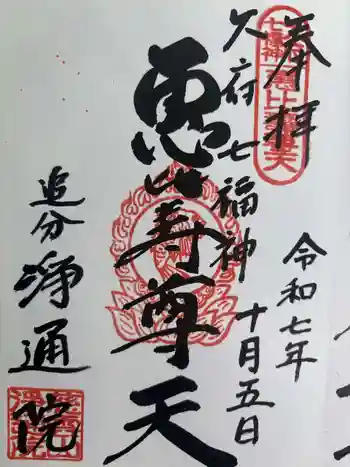 奉拝
令和七年
大府七福神
十月五日
恵比寿尊天
追分
浄通院